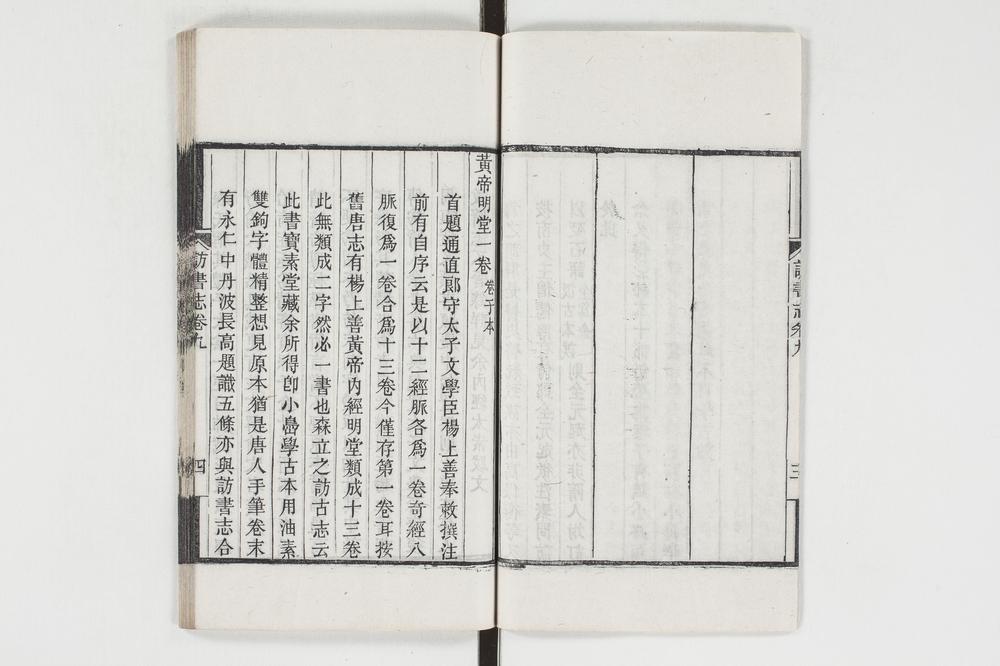 訪書志卷九
三
黃帝明堂一卷 卷子本
首題通直郎守太子文學臣楊上善奉敕撰注
前有自序云是以十二經脈各爲一卷奇經八
脈復爲一卷合爲十三卷今僅存第一卷耳按
舊唐志有楊上善黃帝內經明堂類成十三卷
此無類成二字然必一書也森立之訪古志云
此書寶素堂藏余所得卽小島學古本用油素
雙鉤字體精整想見原本猶是唐人手筆卷末
有永仁中丹波長高題識五條亦與訪書志合
訪書志卷九
四